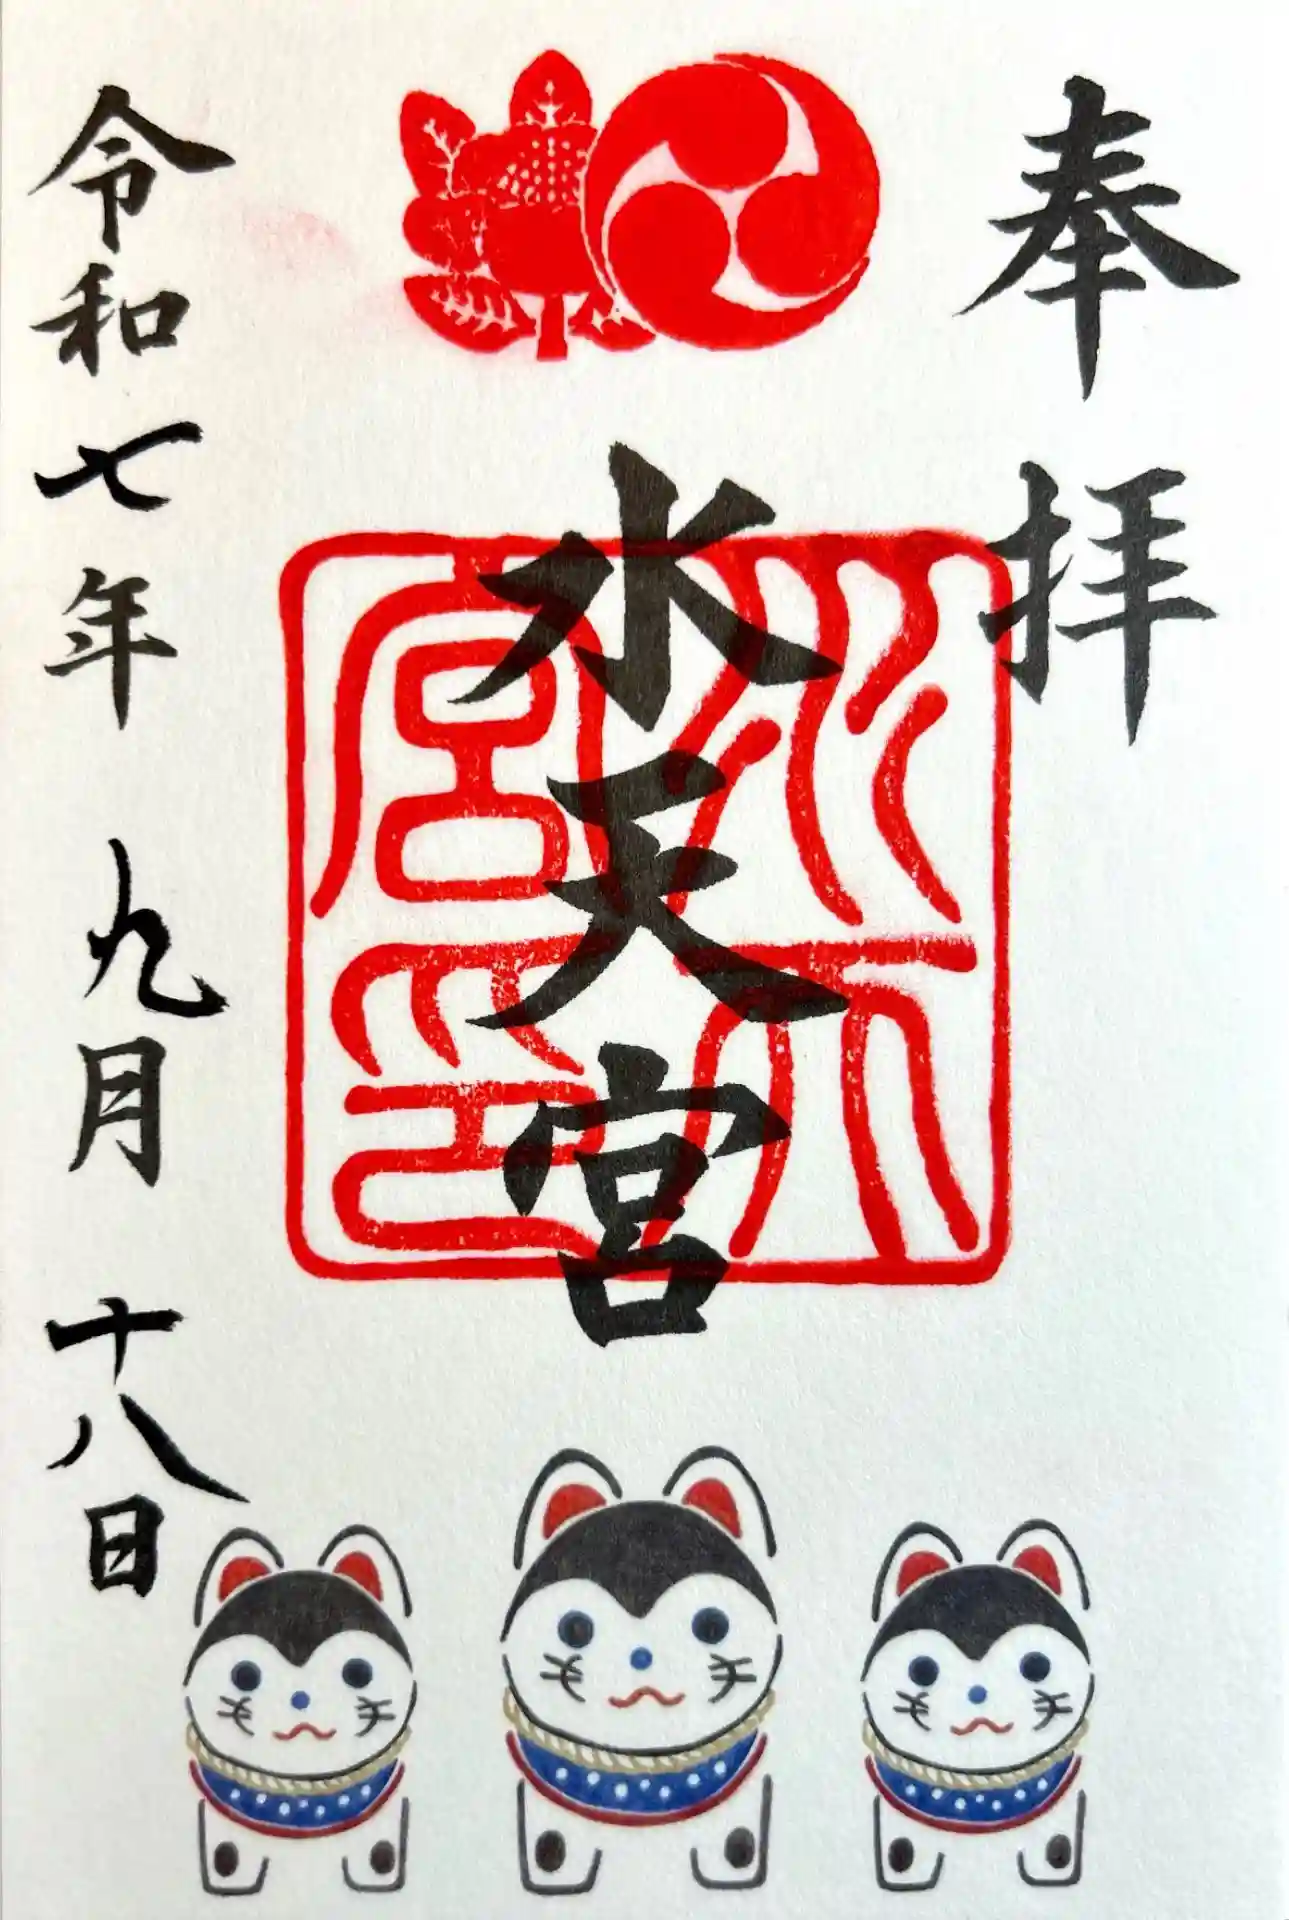 奉拝
水天宮
水天宮印
令和七年 九月 十八日